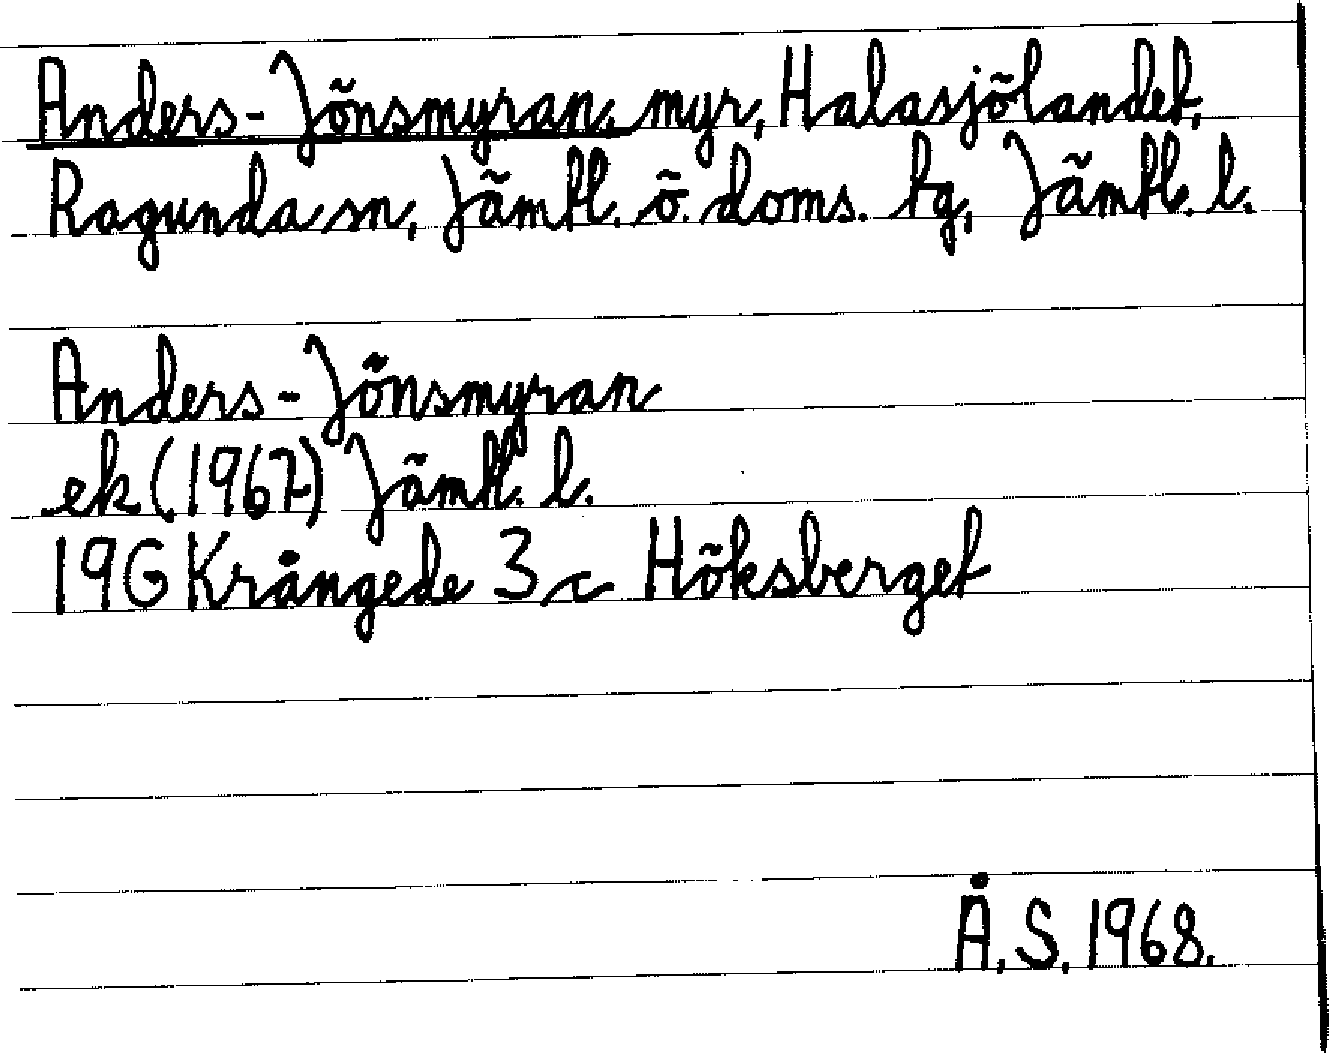 Anders-Jönsmyran, myr, Halasjölandet,
Ragunda sn, Jämtl. ö. doms. tg, Jämtl. l.
Anders-Jönsmyran
ek (1967) Jämtl. l.
19G Krångede 3 c Höksberget
Å.S. 1968.